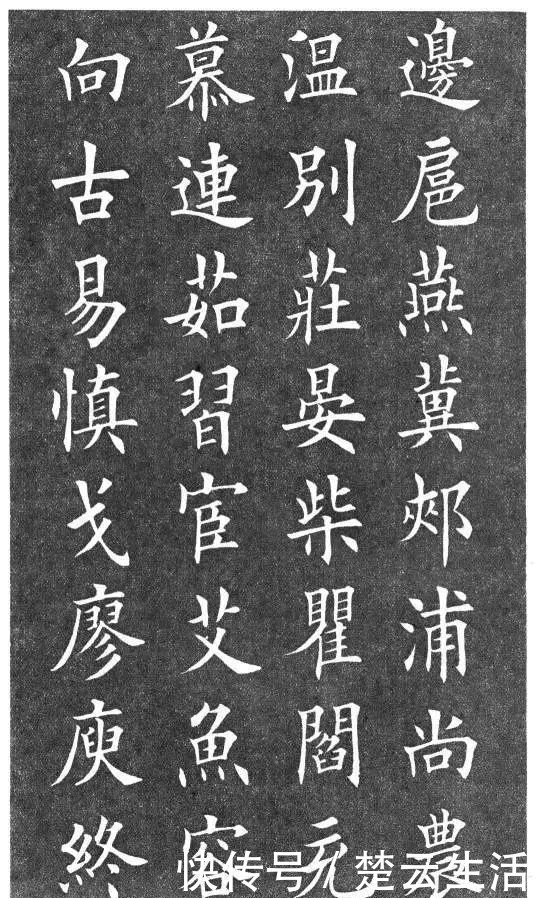 邊扈燕冀郟浦尚農
温別莊晏柴瞿閻充
慕連茹習宦艾魚容
向古易慎戈廖庾終
快传号/楚云生活